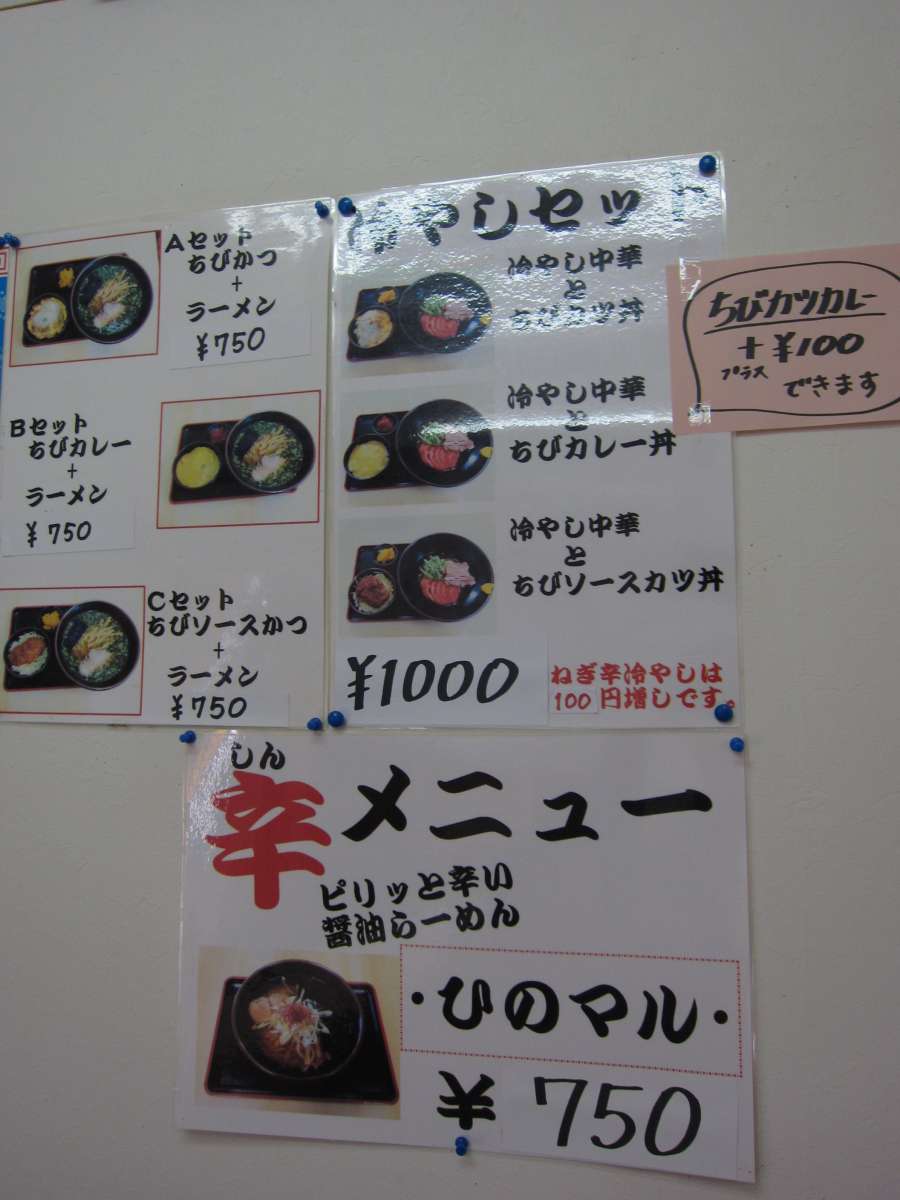 Aセット
ちびかつ
+
ラーメン
¥750
Bセット
ちびカレー
+
ラーメン
¥750
Cセット
ちびソースかつ
+
ラーメン
¥750
冷やしセット
冷やし中華
と
ちびカツ丼
冷やし中華
と
ちびカレー丼
冷やし中華
と
ちびソースカツ丼
¥1000
ねぎ辛冷やしは
100円増しです。
ちびカツカレー
+¥100
プラス
できます
しん
辛メニュー
ピリッと辛い
醤油らーめん
・ひのマル・
¥750